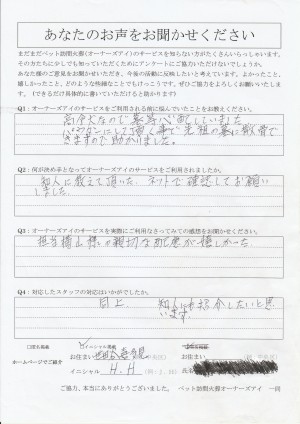 あなたのお声をお聞かせください
まだまだペット訪問火葬(オーナーズアイ)のサービスを知らない方がたくさんいらっしゃいます。
その方たちに少しでも知っていただくためにアンケートにご協力いただけないでしょうか。
あなた様のご意見をお聞かせいただき、今後の活動に反映したいと考えています。よかったこと、
嬉しかったこと、どのような些細なことでもけっこうです。ぜひご協力をよろしくお願いいたします。
(できるだけ具体的に書いていただけると助かります)
Q1:オーナーズアイのサービスをご利用される前に悩んでいたことをお教えください。
高令犬なので葬等心配していました
にして頂く事で先祖の墓に散骨で
きますので助かりました。
Q2:何が決め手となってオーナーズアイのサービスをご利用されましたか。
知人に教えて頂いた ネットで確認してお願い
しました。
Q3:オーナーズアイのサービスを実際にご利用なさってみての感想をお聞かせください。
担当横山様の親切な配慮が嬉しかった。
Q4:対応したスタッフの対応はいかがでしたか。
同上 知人にも紹介したいと思
います。
ホームページでご紹介
イニシャル掲載
お住まい
イニシャル H.H
お住まい
氏名
ご協力、本当にありがとうございました。 ペット訪問火葬オーナーズアイ 一同